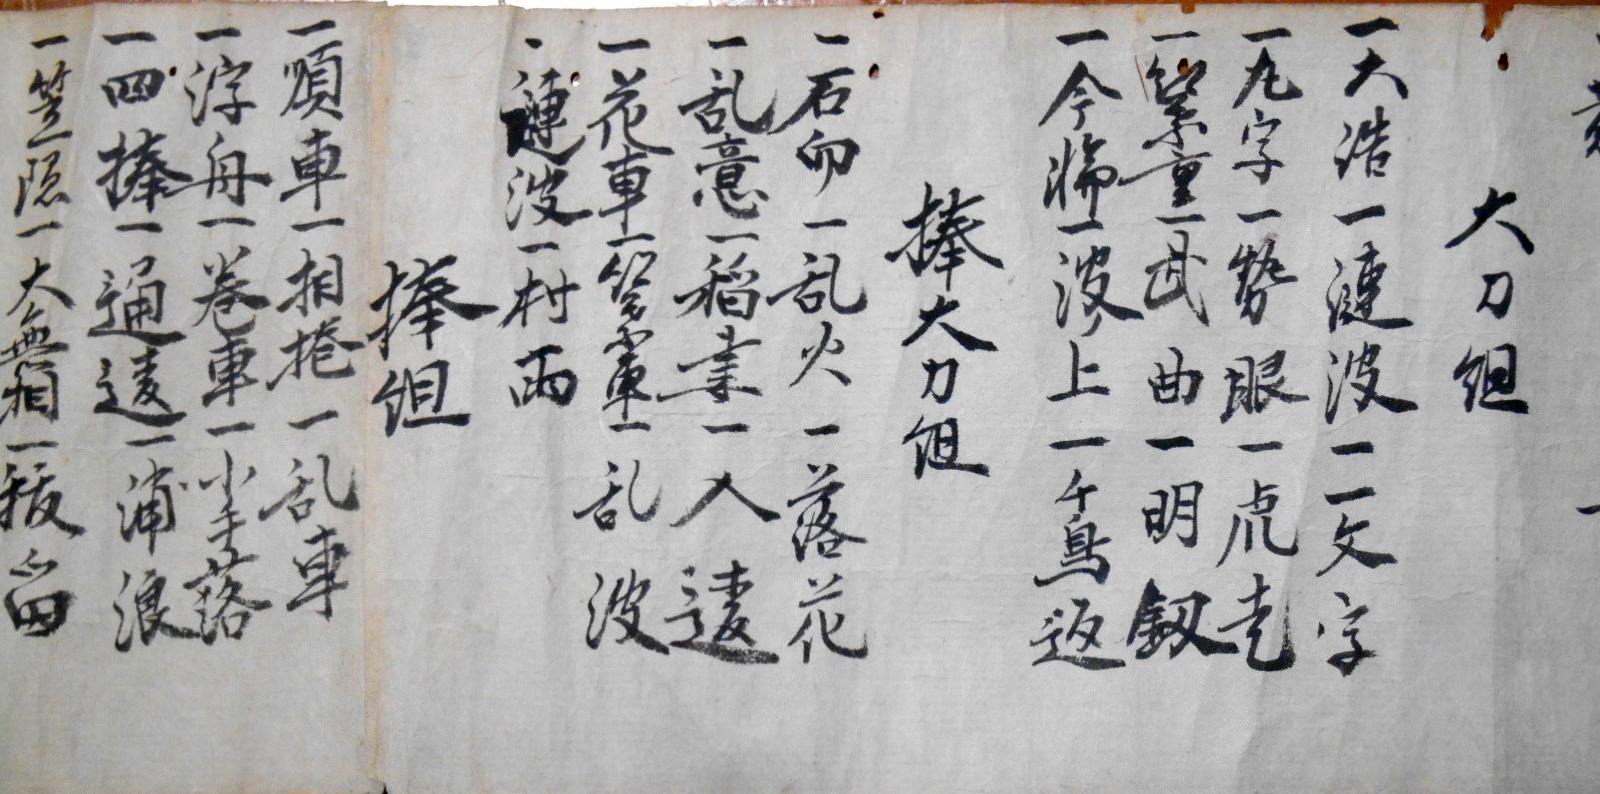 大刀組
一大浩一漣波一二文字
一九字一勢眼一虎走
一䉼重一武曲一明釼
一今帰一波上一千鳥返
捧大刀組
一石卯一乱火一落花
一乱意一稲妻一入違
一花車一䉼車一乱波
一漣波一村雨
捧組
一順車一相捲一乱車
一浮舟一巻車一小手落
一四捧一通違一浦浪
一笠隠一大無相一抜留